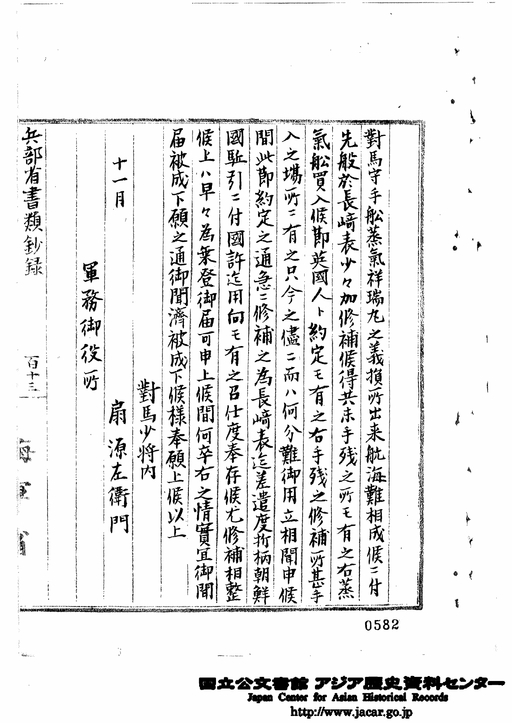 對馬守手舩蒸氣祥瑞丸之義損所出来航海難相成候ニ付
先般於長﨑表少々加修補候得共未手残之所モ有之右蒸
氣舩買入候節英國人ト約定モ有之右手残之修補所甚手
入之場所ニ有之只今之儘ニ而ハ何分難御用立相聞申候
間此節約定之通急ニ修補之為長﨑表迄差遣度折柄朝鮮
國駈引ニ付國許迄用向モ有之召仕度奉存候尤修補相整
候上ハ早々為乗登御届可申上候間何卒右之情實宜御聞
届被成下願之通御聞濟被成下候様奉願上候以上
對馬少将内
十一月
扇源左衛門
軍務御役所
兵部省書類鈔録
百十三
海軍省
0582
国立公文書館 アジア歴史資料センター
Japan Center for Asian Historical Records
http://www.jacar.go.jp